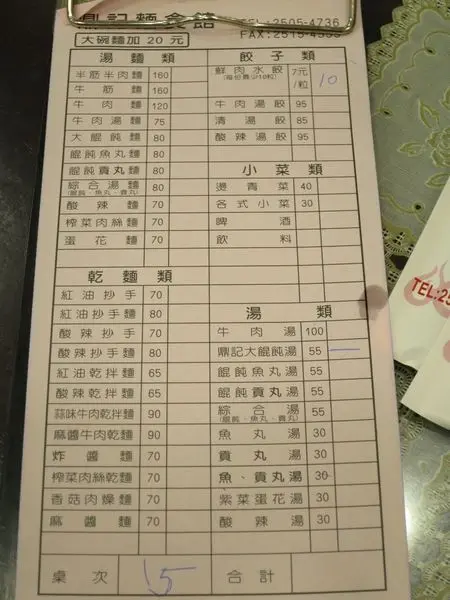 鼎記麵食館
TEL:2505-4736
大碗麵加 20 元
湯麵類
半筋半肉麵 160
牛筋麵 160
牛肉麵 120
牛肉湯麵 75
大餛飩麵 80
餛飩魚丸麵 80
餛飩貢丸麵 80
綜合湯麵 80
(餛飩、魚丸、貢丸)
酸辣麵 70
榨菜肉絲麵 70
蛋花麵 70
乾麵類
紅油抄手 70
紅油抄手麵 80
酸辣抄手 70
酸辣抄手麵 80
紅油乾拌麵 65
酸辣乾拌麵 65
蒜味牛肉乾拌麵 90
麻醬牛肉乾麵 90
炸醬麵 70
榨菜肉絲乾麵 70
香菇肉燥麵 70
麻醬麵 70
餃子類
鮮肉水餃 7元/粒 10
(每份最少10粒)
牛肉湯餃 95
清湯餃 85
酸辣湯餃 95
小菜類
燙青菜 40
各式小菜 30
啤酒
飲料
湯類
牛肉湯 100
鼎記大餛飩湯 55 一
餛飩魚丸湯 55
餛飩貢丸湯 55
綜合湯 55
(餛飩、魚丸、貢丸)
魚丸湯 30
貢丸湯 30
魚、貢丸湯 30
紫菜蛋花湯 30
酸辣湯 30
桌次 15
合計
TEL:25